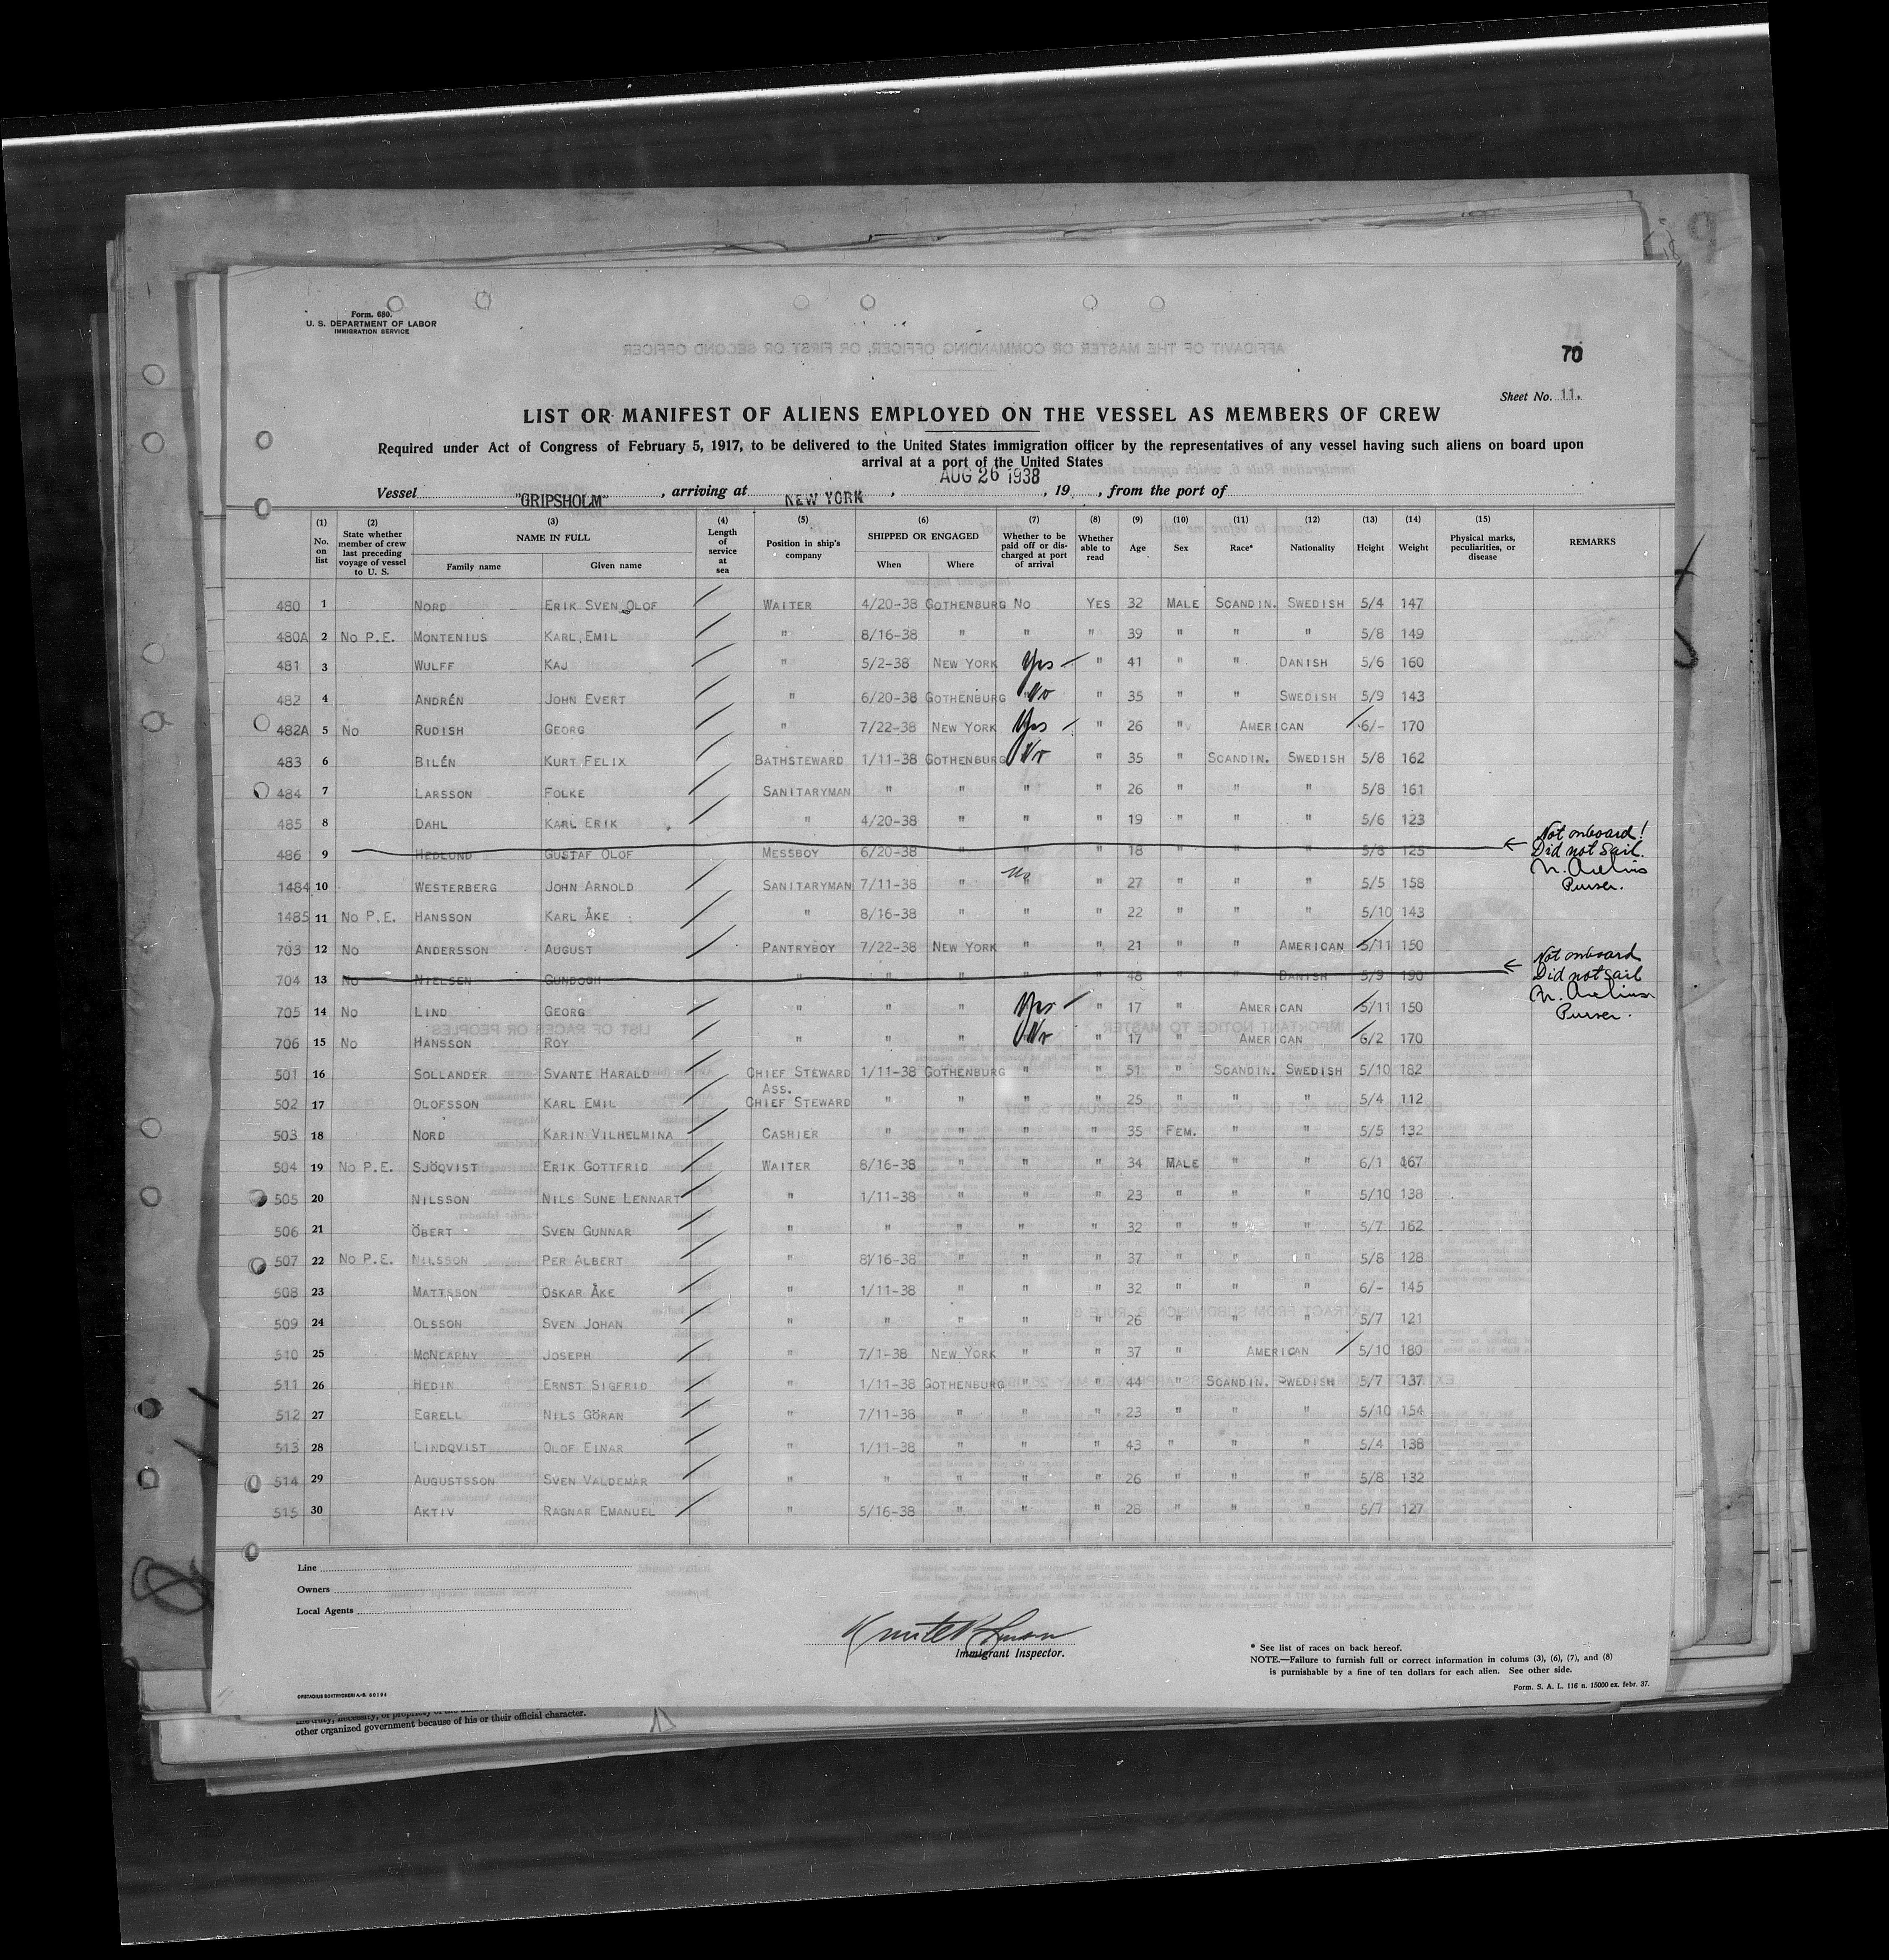 Form. 680.
U. S. DEPARTMENT OF LABOR
IMMIGRATION SERVICE
70
Sheet No. 11.
LIST OR MANIFEST OF ALIENS EMPLOYED ON THE VESSEL AS MEMBERS OF CREW
Required under Act of Congress of February 5, 1917, to be delivered to the United States immigration officer by the representatives of any vessel having such aliens on board upon
arrival at a port of the United States
Vessel "GRIPSHOLM", arriving at NEW YORK, AUG 26 1938, 19 , from the port of
(1) No. on list (2) State whether member of crew last preceding voyage of vessel to U. S. (3) NAME IN FULL Family name Given name (4) Length of service at sea (5) Position in ship's company (6) SHIPPED OR ENGAGED When Where (7) Whether to be paid off or discharged at port of arrival (8) Whether able to read (9) Age (10) Sex (11) Race* (12) Nationality (13) Height (14) Weight (15) Physical marks, peculiarities, or disease REMARKS
480 1 NORD ERIK SVEN OLOF WAITER 4/20-38 GOTHENBURG NO YES 32 MALE SCANDIN. SWEDISH 5/4 147
480A 2 NO P.E. MONTENIUS KARL EMIL " 8/16-38 " " " 39 " " " 5/8 149
481 3 WULFF KAJ " 5/2-38 NEW YORK Yes " 41 " " DANISH 5/6 160
482 4 ANDRÉN JOHN EVERT " 6/20-38 GOTHENBURG No " 35 " " SWEDISH 5/9 143
482A 5 NO RUDISH GEORG " 7/22-38 NEW YORK Yes " 26 " AMERICAN 6/- 170
483 6 BILÉN KURT FELIX BATHSTEWARD 1/11-38 GOTHENBURG No " 35 " SCANDIN. SWEDISH 5/8 162
484 7 LARSSON FOLKE SANITARYMAN " " " " 26 " " " 5/8 161
485 8 DAHL KARL ERIK " 4/20-38 " " " 19 " " " 5/6 123
486 9 HEDLUND GUSTAF OLOF MESSBOY 6/20-38 " " " 18 " " " 5/8 125 Not onboard! Did not sail. Purser.
1484 10 WESTERBERG JOHN ARNOLD SANITARYMAN 7/11-38 " No " 27 " " " 5/5 158
1485 11 NO P.E. HANSSON KARL ÅKE " 8/16-38 " " " 22 " " " 5/10 143
703 12 NO ANDERSSON AUGUST PANTRYBOY 7/22-38 NEW YORK " " 21 " " AMERICAN 5/11 150
704 13 NO NIELSEN " " " " 48 " " DANISH 5/9 190 Not onboard Did not sail Purser.
705 14 NO LIND GEORG " " " Yes " 17 " AMERICAN 5/11 150
706 15 NO HANSSON ROY " " " No " 17 " AMERICAN 6/2 170
501 16 SOLLANDER SVANTE HARALD CHIEF STEWARD 1/11-38 GOTHENBURG " " 51 " SCANDIN. SWEDISH 5/10 182
502 17 OLOFSSON KARL EMIL ASS. CHIEF STEWARD " " " " 25 " " " 5/4 112
503 18 NORD KARIN VILHELMINA CASHIER " " " " 35 FEM. " " 5/5 132
504 19 NO P.E. SJÖQVIST ERIK GOTTFRID WAITER 8/16-38 " " " 34 MALE " " 6/1 167
505 20 NILSSON NILS SUNE LENNART " 1/11-38 " " " 23 " " " 5/10 138
506 21 ÖBERT SVEN GUNNAR " " " " " 32 " " " 5/7 162
507 22 NO P.E. NILSSON PER ALBERT " 8/16-38 " " " 37 " " " 5/8 128
508 23 MATTSSON OSKAR ÅKE " 1/11-38 " " " 32 " " " 6/- 145
509 24 OLSSON SVEN JOHAN " " " " " 26 " " " 5/7 121
510 25 MCNEARNY JOSEPH " 7/1-38 NEW YORK " " 37 " AMERICAN 5/10 180
511 26 HEDIN ERNST SIGFRID " 1/11-38 GOTHENBURG " " 44 " SCANDIN. SWEDISH 5/7 137
512 27 EGRELL NILS GÖRAN " 7/11-38 " " " 23 " " " 5/10 154
513 28 LINDQVIST OLOF EINAR " 1/11-38 " " " 43 " " " 5/4 138
514 29 AUGUSTSSON SVEN VALDEMAR " " " " " 26 " " " 5/8 132
515 30 AKTIV RAGNAR EMANUEL " 5/16-38 " " " 28 " " " 5/7 127
Line
Owners
Local Agents
Immigrant Inspector.
* See list of races on back hereof.
NOTE.—Failure to furnish full or correct information in colums (3), (6), (7), and (8)
is punishable by a fine of ten dollars for each alien. See other side.
Form. S. A. L. 116 n. 15000 ex. febr. 37.
other organized government because of his or their official character.